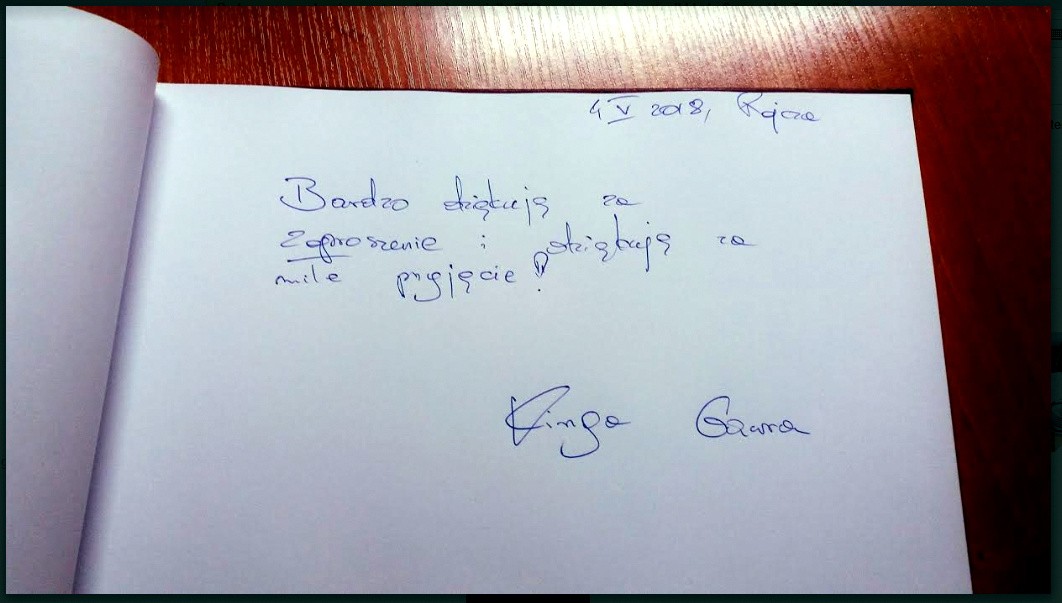 4 V 2018, Rajcza
Bardzo dziękuję za
zaproszenie i dziękuję za
miłe przyjęcie!
Kinga Gawra